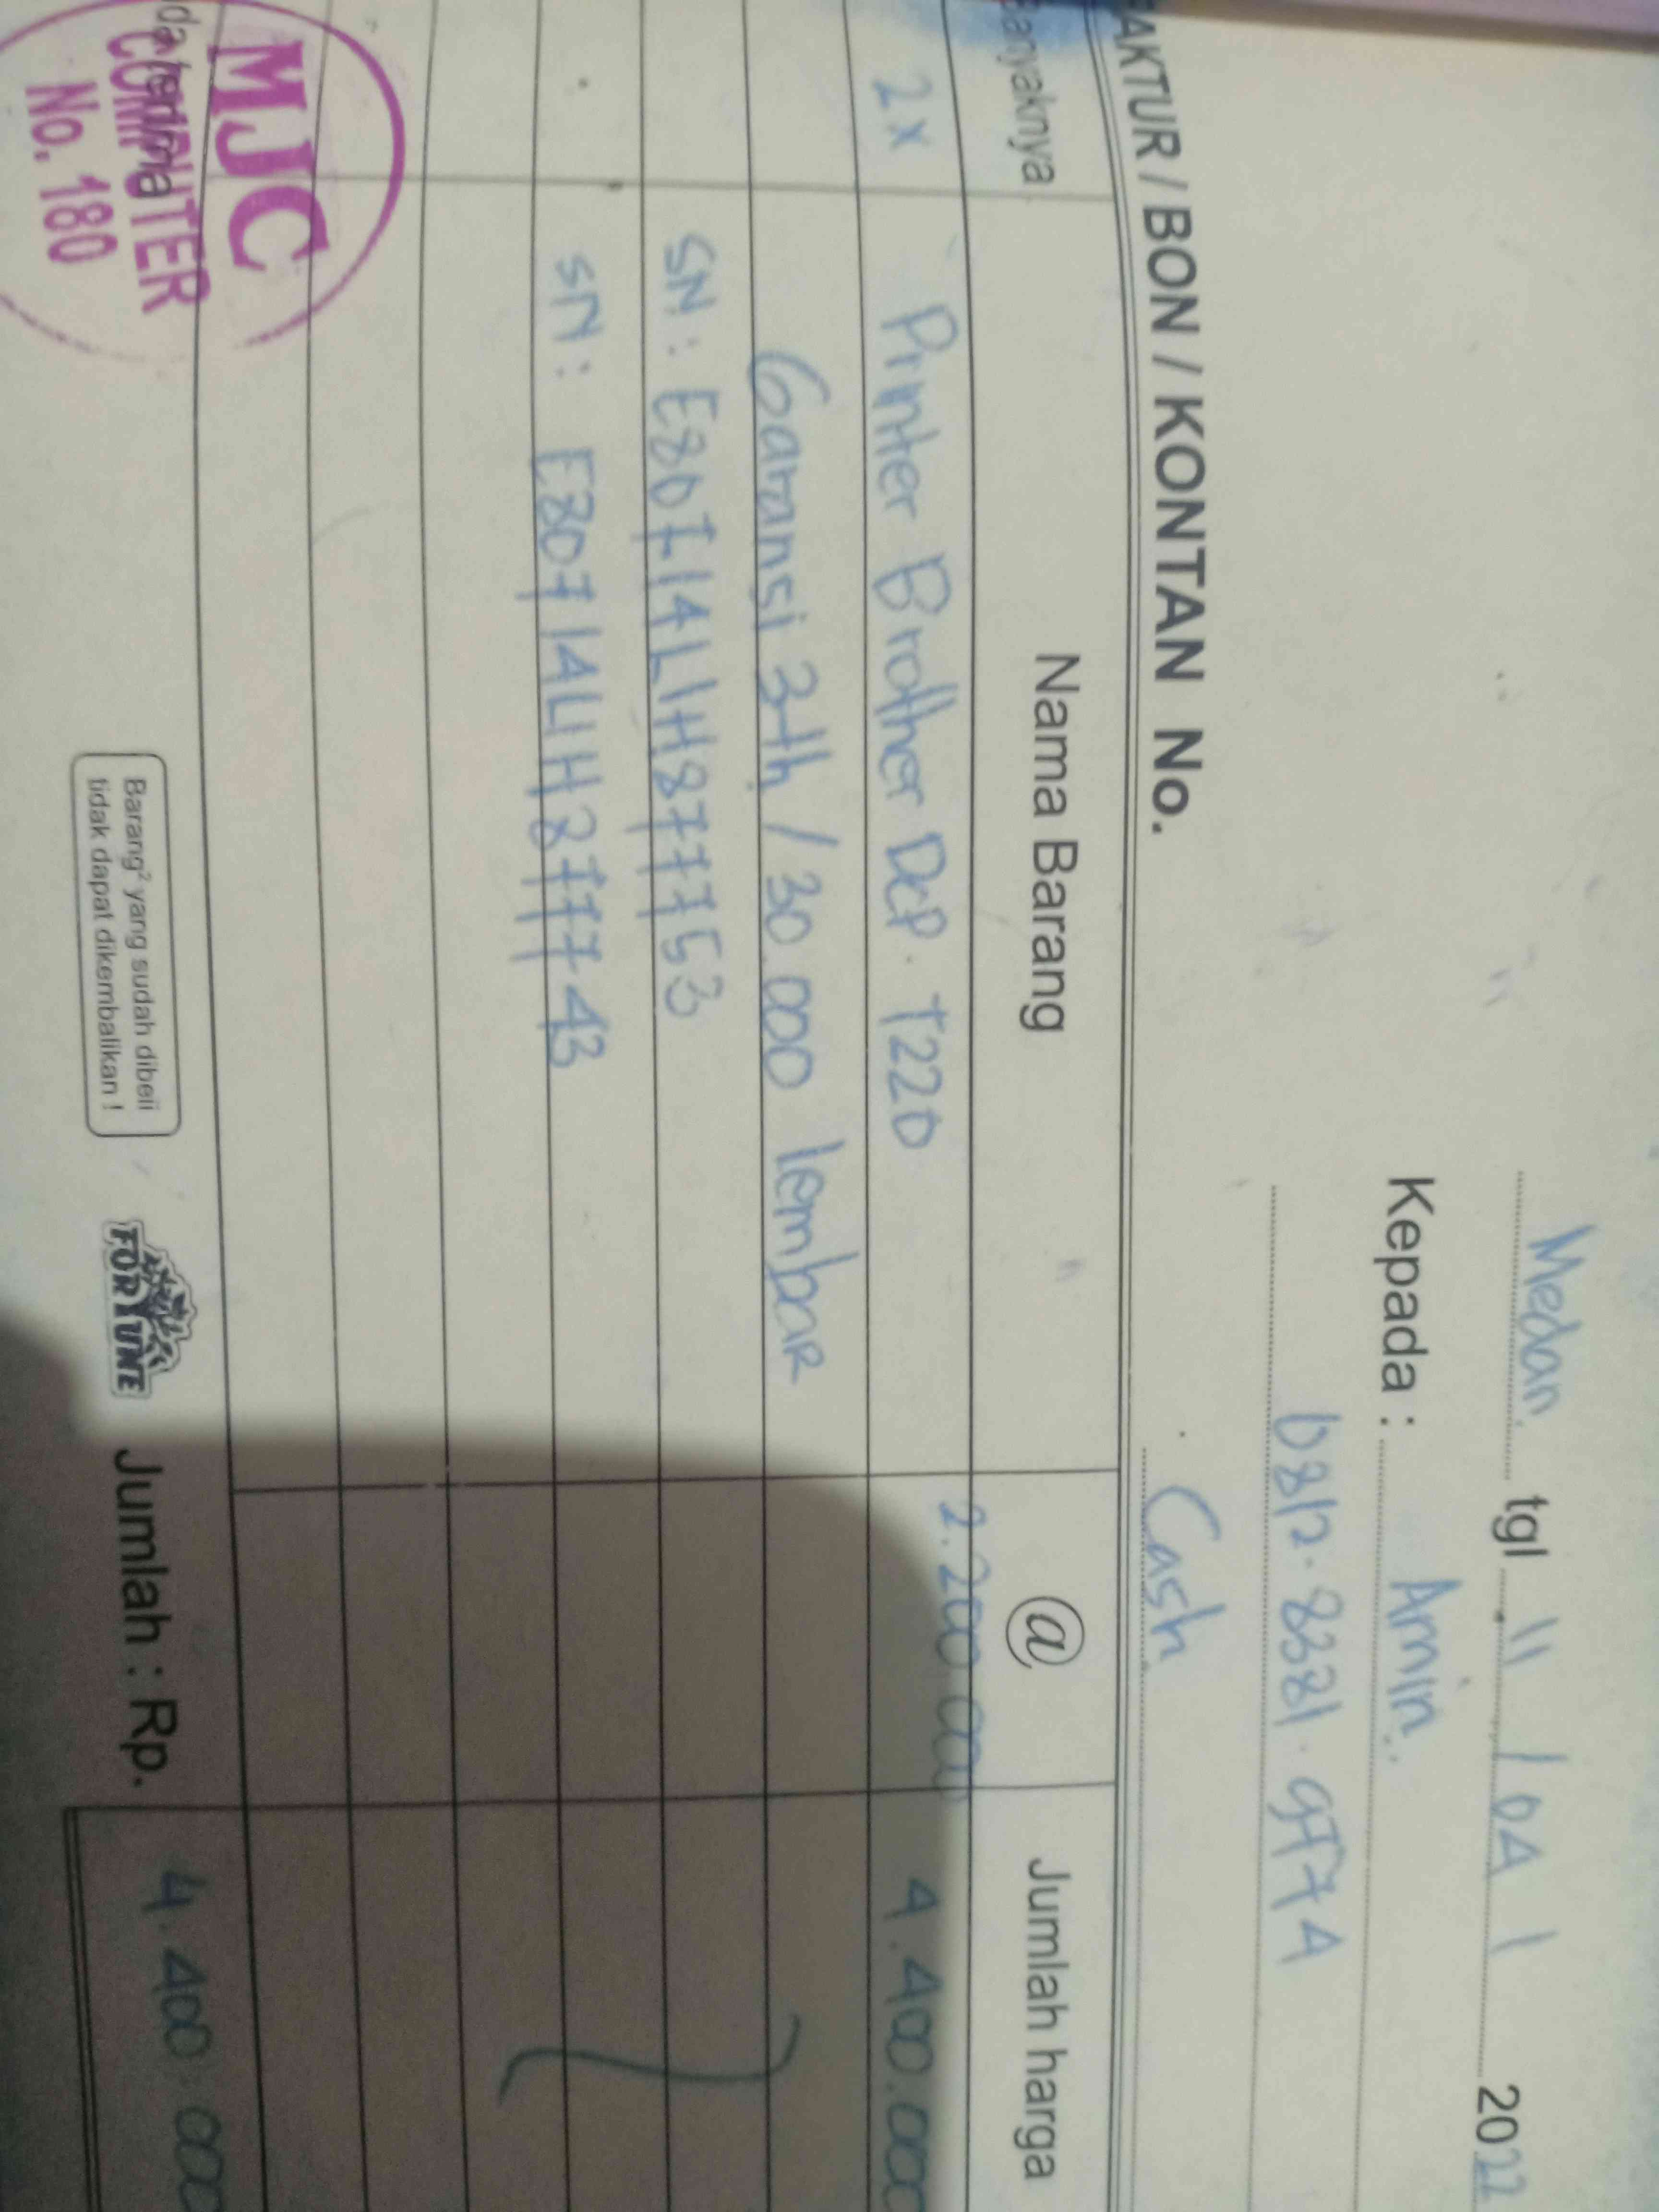 Medan. tgl 11 / 04 / 2022
Kepada : Amin.
0812.8381.9774
Cash
AKTUR / BON / KONTAN No.
anyaknya Nama Barang @ Jumlah harga
2x Printer Brother DCP. T220 2.200.000 4.400.000
Garansi 3 th / 30.000 lembar
SN : E80714L1H877753
SN : E80714L1H877743
MJC
COMPUTER
No. 180
da terima
Barang² yang sudah dibeli
tidak dapat dikembalikan !
FORTUNE
Jumlah : Rp. 4.400.000